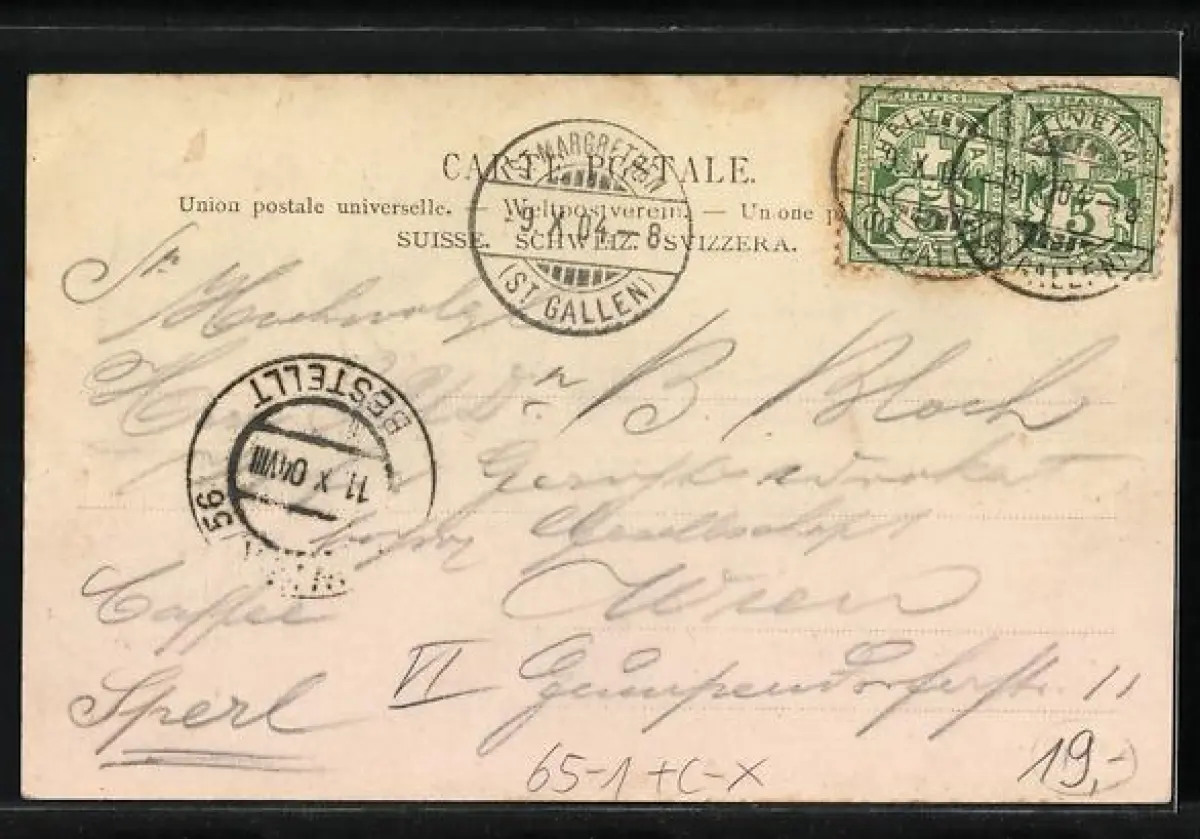 CARTE POSTALE.
Union postale universelle. — Weltpostverein. — Unione p
SUISSE. SCHWEIZ. SVIZZERA.
ST. MARGRETHEN
-9. X. 04 – 8
(ST. GALLEN)
FRANCO
HELVETIA
5
X. 04 –
GALLEN
FRANCO
HELVETIA
5
X. 04 – 8
GALLEN)
Sr Hochwolg
Dr B. Bloch
BESTELLT
11. X 04 VIII
56
Gesellschaft
Caffee Wien
VI Gumpendorferstr. 11
Sperl
65-1+C-X
19,-